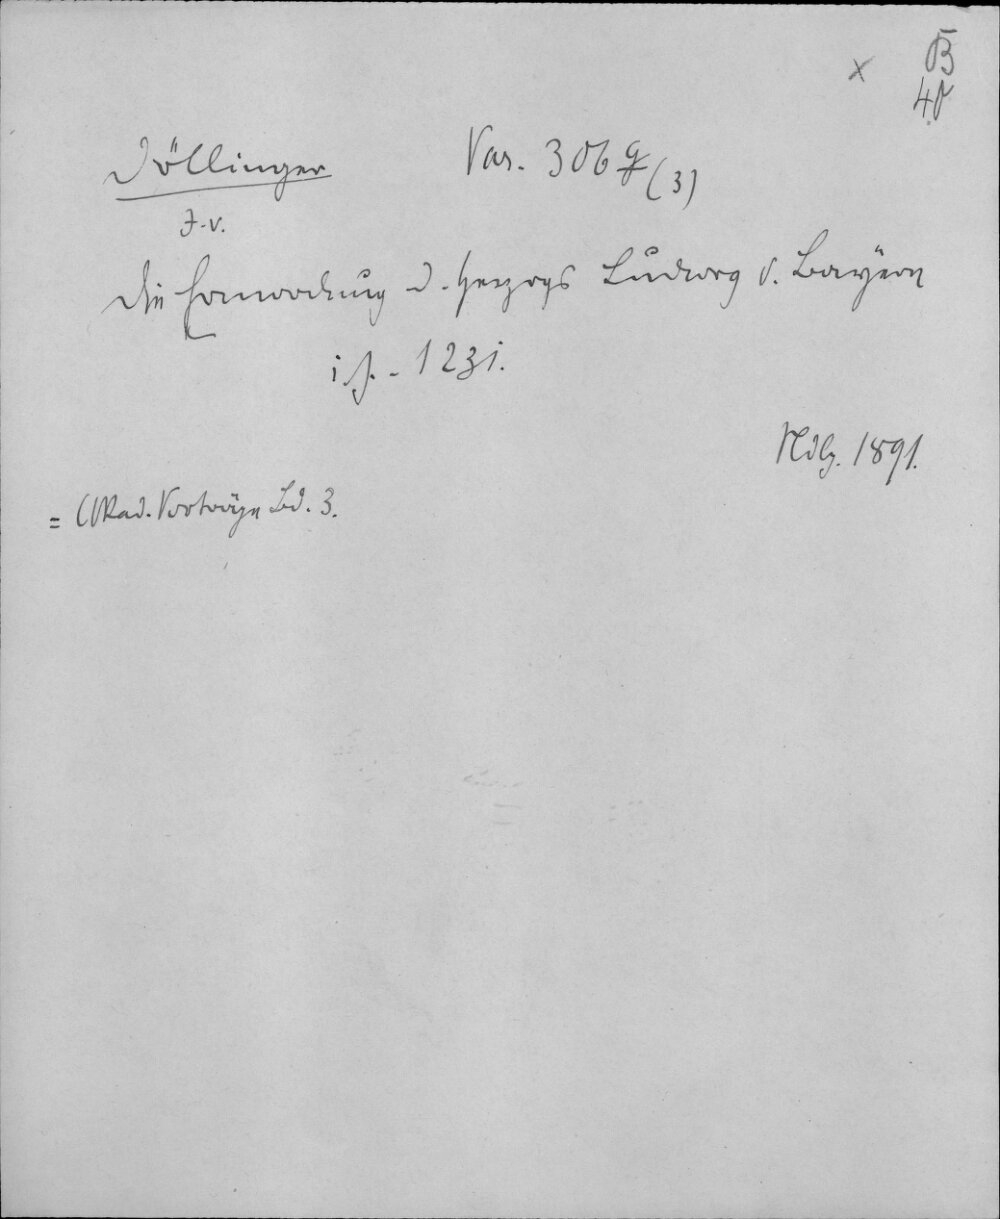 x B
40
Döllinger Var. 306 q (3)
J. v.
Die Ermordung d. Herzogs Ludwig v. Bayern
i. J. - 1231.
Ndlg. 1891.
= Akad. Vorträge Bd. 3.